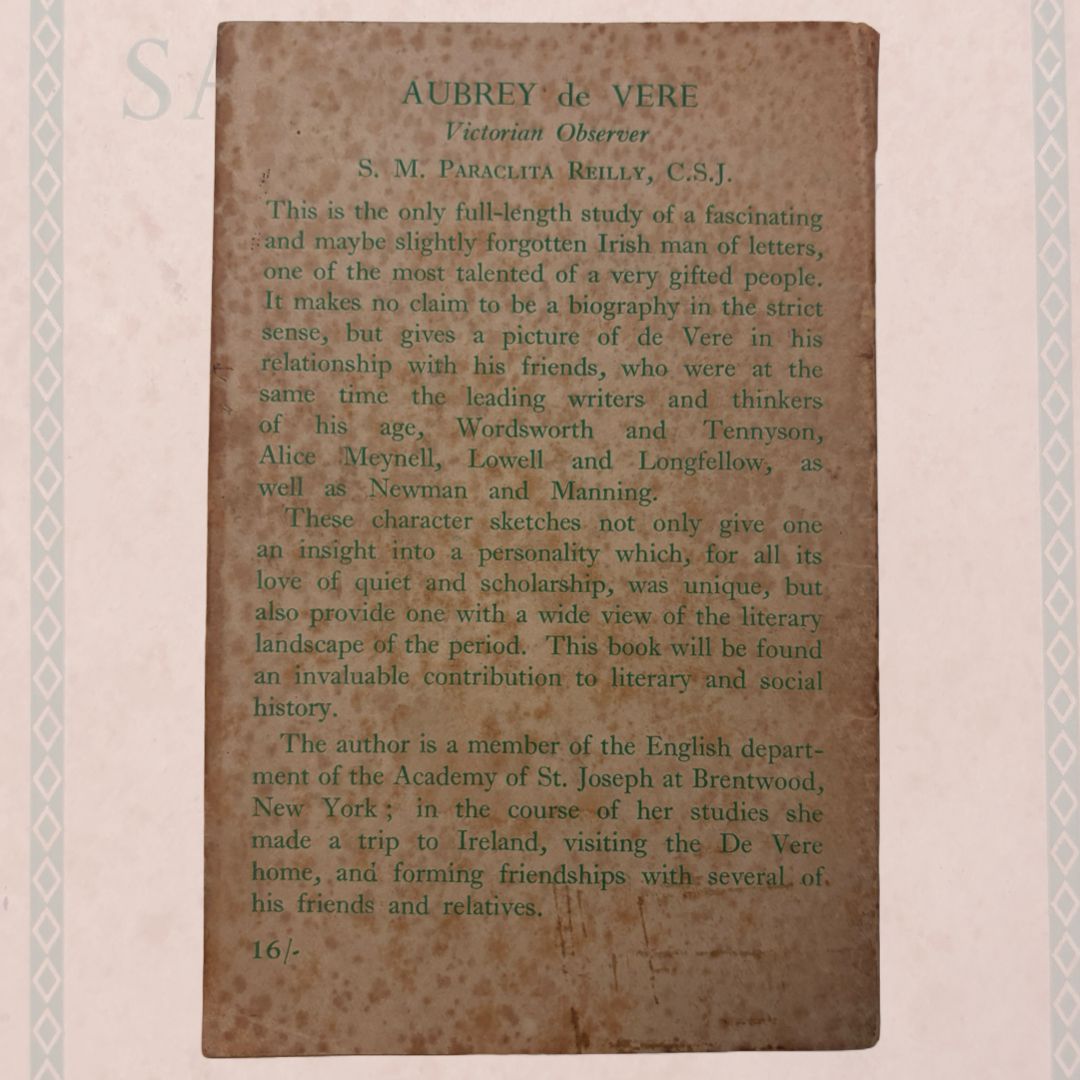 SA
AUBREY de VERE
Victorian Observer
S. M. PARACLITA REILLY, C.S.J.
This is the only full-length study of a fascinating
and maybe slightly forgotten Irish man of letters,
one of the most talented of a very gifted people.
It makes no claim to be a biography in the strict
sense, but gives a picture of de Vere in his
relationship with his friends, who were at the
same time the leading writers and thinkers
of his age, Wordsworth and Tennyson,
Alice Meynell, Lowell and Longfellow, as
well as Newman and Manning.
These character sketches not only give one
an insight into a personality which, for all its
love of quiet and scholarship, was unique, but
also provide one with a wide view of the literary
landscape of the period. This book will be found
an invaluable contribution to literary and social
history.
The author is a member of the English depart-
ment of the Academy of St. Joseph at Brentwood,
New York ; in the course of her studies she
made a trip to Ireland, visiting the De Vere
home, and forming friendships with several of
his friends and relatives.
16/-